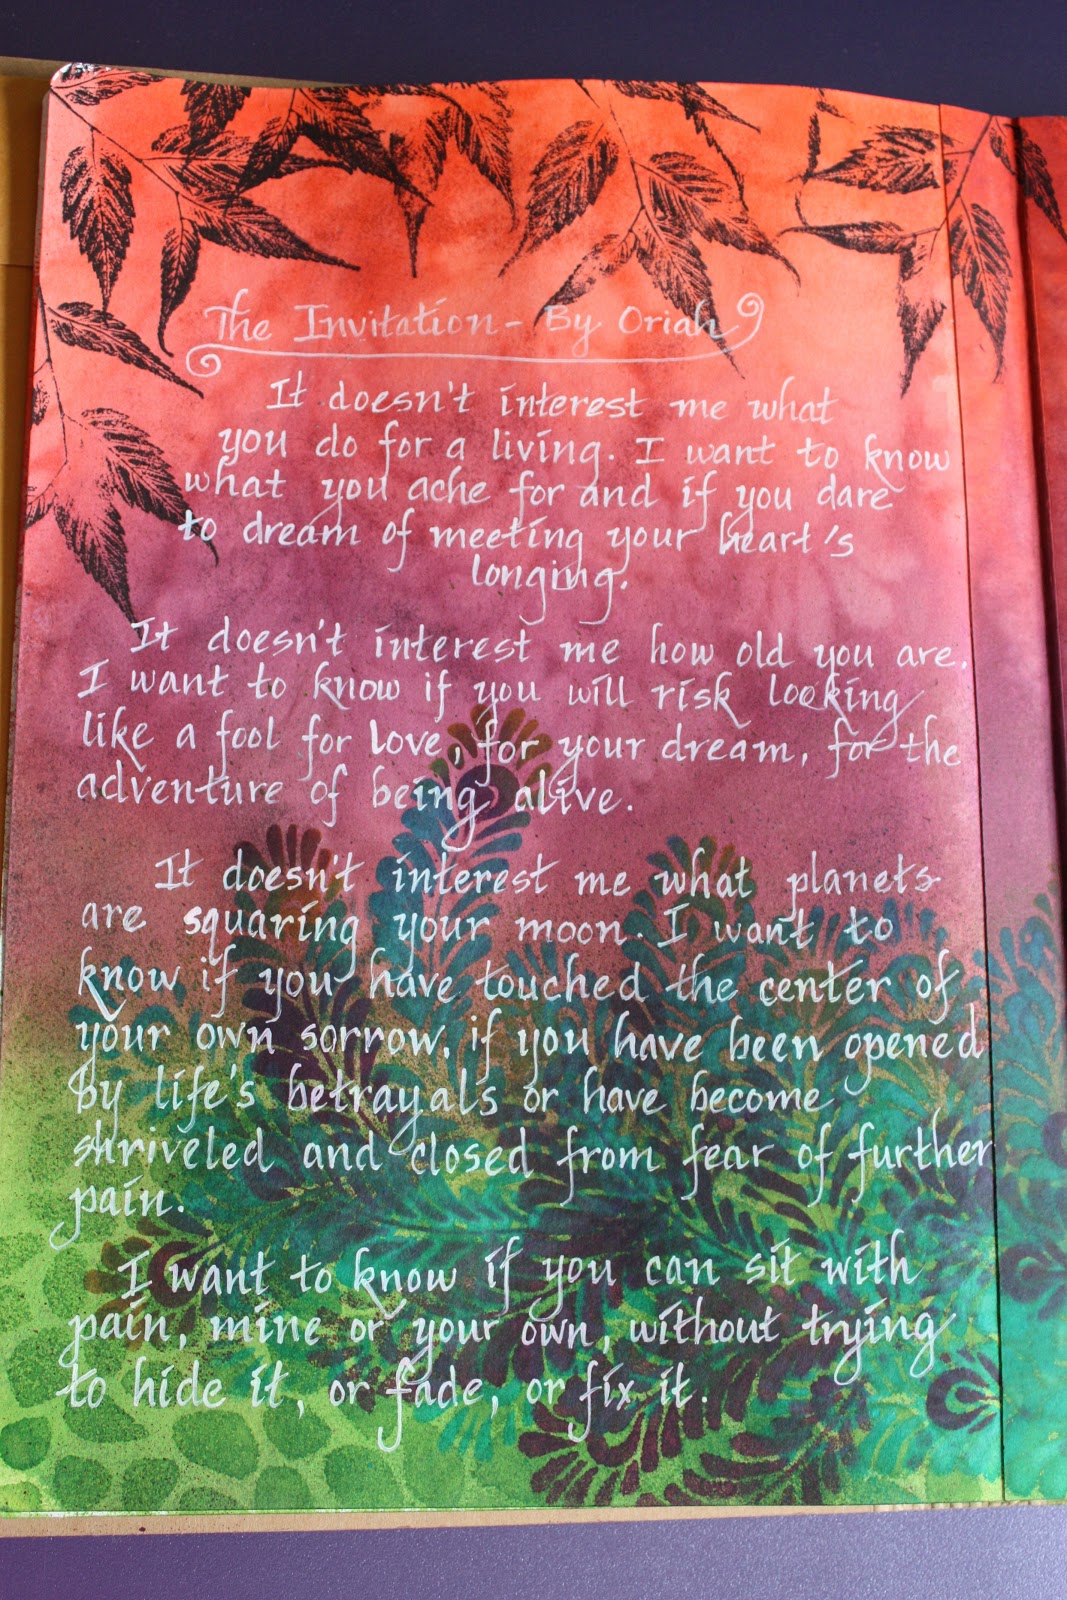 The Invitation - By Oriah
It doesn't interest me what
you do for a living. I want to know
what you ache for and if you dare
to dream of meeting your heart's
longing.
It doesn't interest me how old you are.
I want to know if you will risk looking
like a fool for love, for your dream, for the
adventure of being alive.
It doesn't interest me what planets
are squaring your moon. I want to
know if you have touched the center of
your own sorrow, if you have been opened
by life's betrayals or have become
shriveled and closed from fear of further
pain.
I want to know if you can sit with
pain, mine or your own, without trying
to hide it, or fade, or fix it.